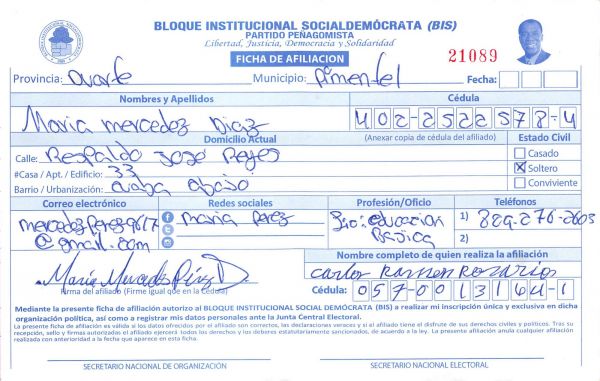 BLOQUE INSTITUCIONAL SOCIALDEMÓCRATA (BIS)
PARTIDO PEÑAGOMISTA
Libertad, Justicia, Democracia y Solidaridad
FICHA DE AFILIACION
21089
Provincia: Duarte Municipio: Pimentel Fecha:
Nombres y Apellidos Cédula
Maria mercedez Diaz 402-2522578-4
Domicilio Actual (Anexar copia de cédula del afiliado) Estado Civil
Calle: Respaldo José Reyes Casado
#Casa / Apt. / Edificio: 33 Soltero
Barrio / Urbanización: abajo Conviviente
Correo electrónico Redes sociales Profesión/Oficio Teléfonos
mercedezperez9617 maria perez Lic: educacion 1) 829-276-2603
@gmail.com Basica 2)
Nombre completo de quien realiza la afiliación
Maria Mercedes Pérez D. Carlos Ramon Rosario
Firma del afiliado (Firme igual que en la Cédula) Cédula: 057-0013164-1
Mediante la presente ficha de afiliación autorizo al BLOQUE INSTITUCIONAL SOCIAL DEMÓCRATA (BIS) a realizar mi inscripción única y exclusiva en dicha
organización política, así como a registrar mis datos personales ante la Junta Central Electoral.
La presente ficha de afiliación es válida si los datos ofrecidos por el afiliado son correctos, las declaraciones veraces y si el afiliado tiene el disfrute de sus derechos civiles y políticos. Tras su
recepción, sello y firmas autorizadas el afiliado ejercerá todos los derechos y los deberes estatutariamente sancionados, de acuerdo a la ley. La presente afiliación anula cualquier afiliación
realizada con anterioridad a la fecha que aparece en esta ficha.
SECRETARIO NACIONAL DE ORGANIZACIÓN SECRETARIO NACIONAL ELECTORAL